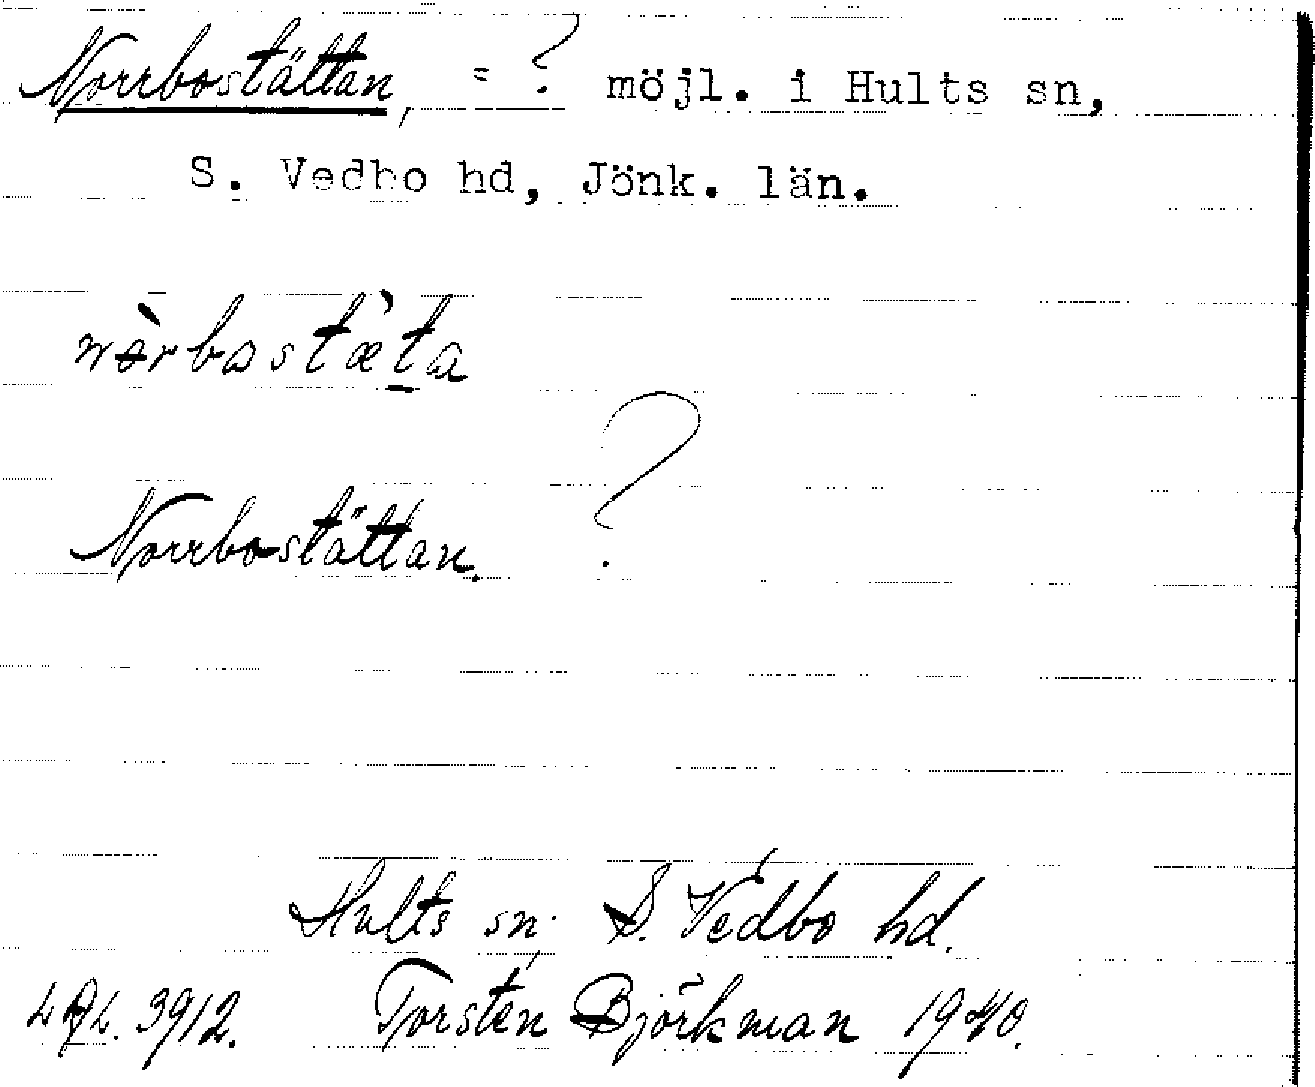 Norrbostättan, = ? möjl. i Hults sn,
S. Vedbo hd, Jönk. län.
nɵ̀rbɷstæ̀ta
Norrbostättan. ?
Hults sn, S. Vedbo hd.
3912. Torsten Björkman 1940.